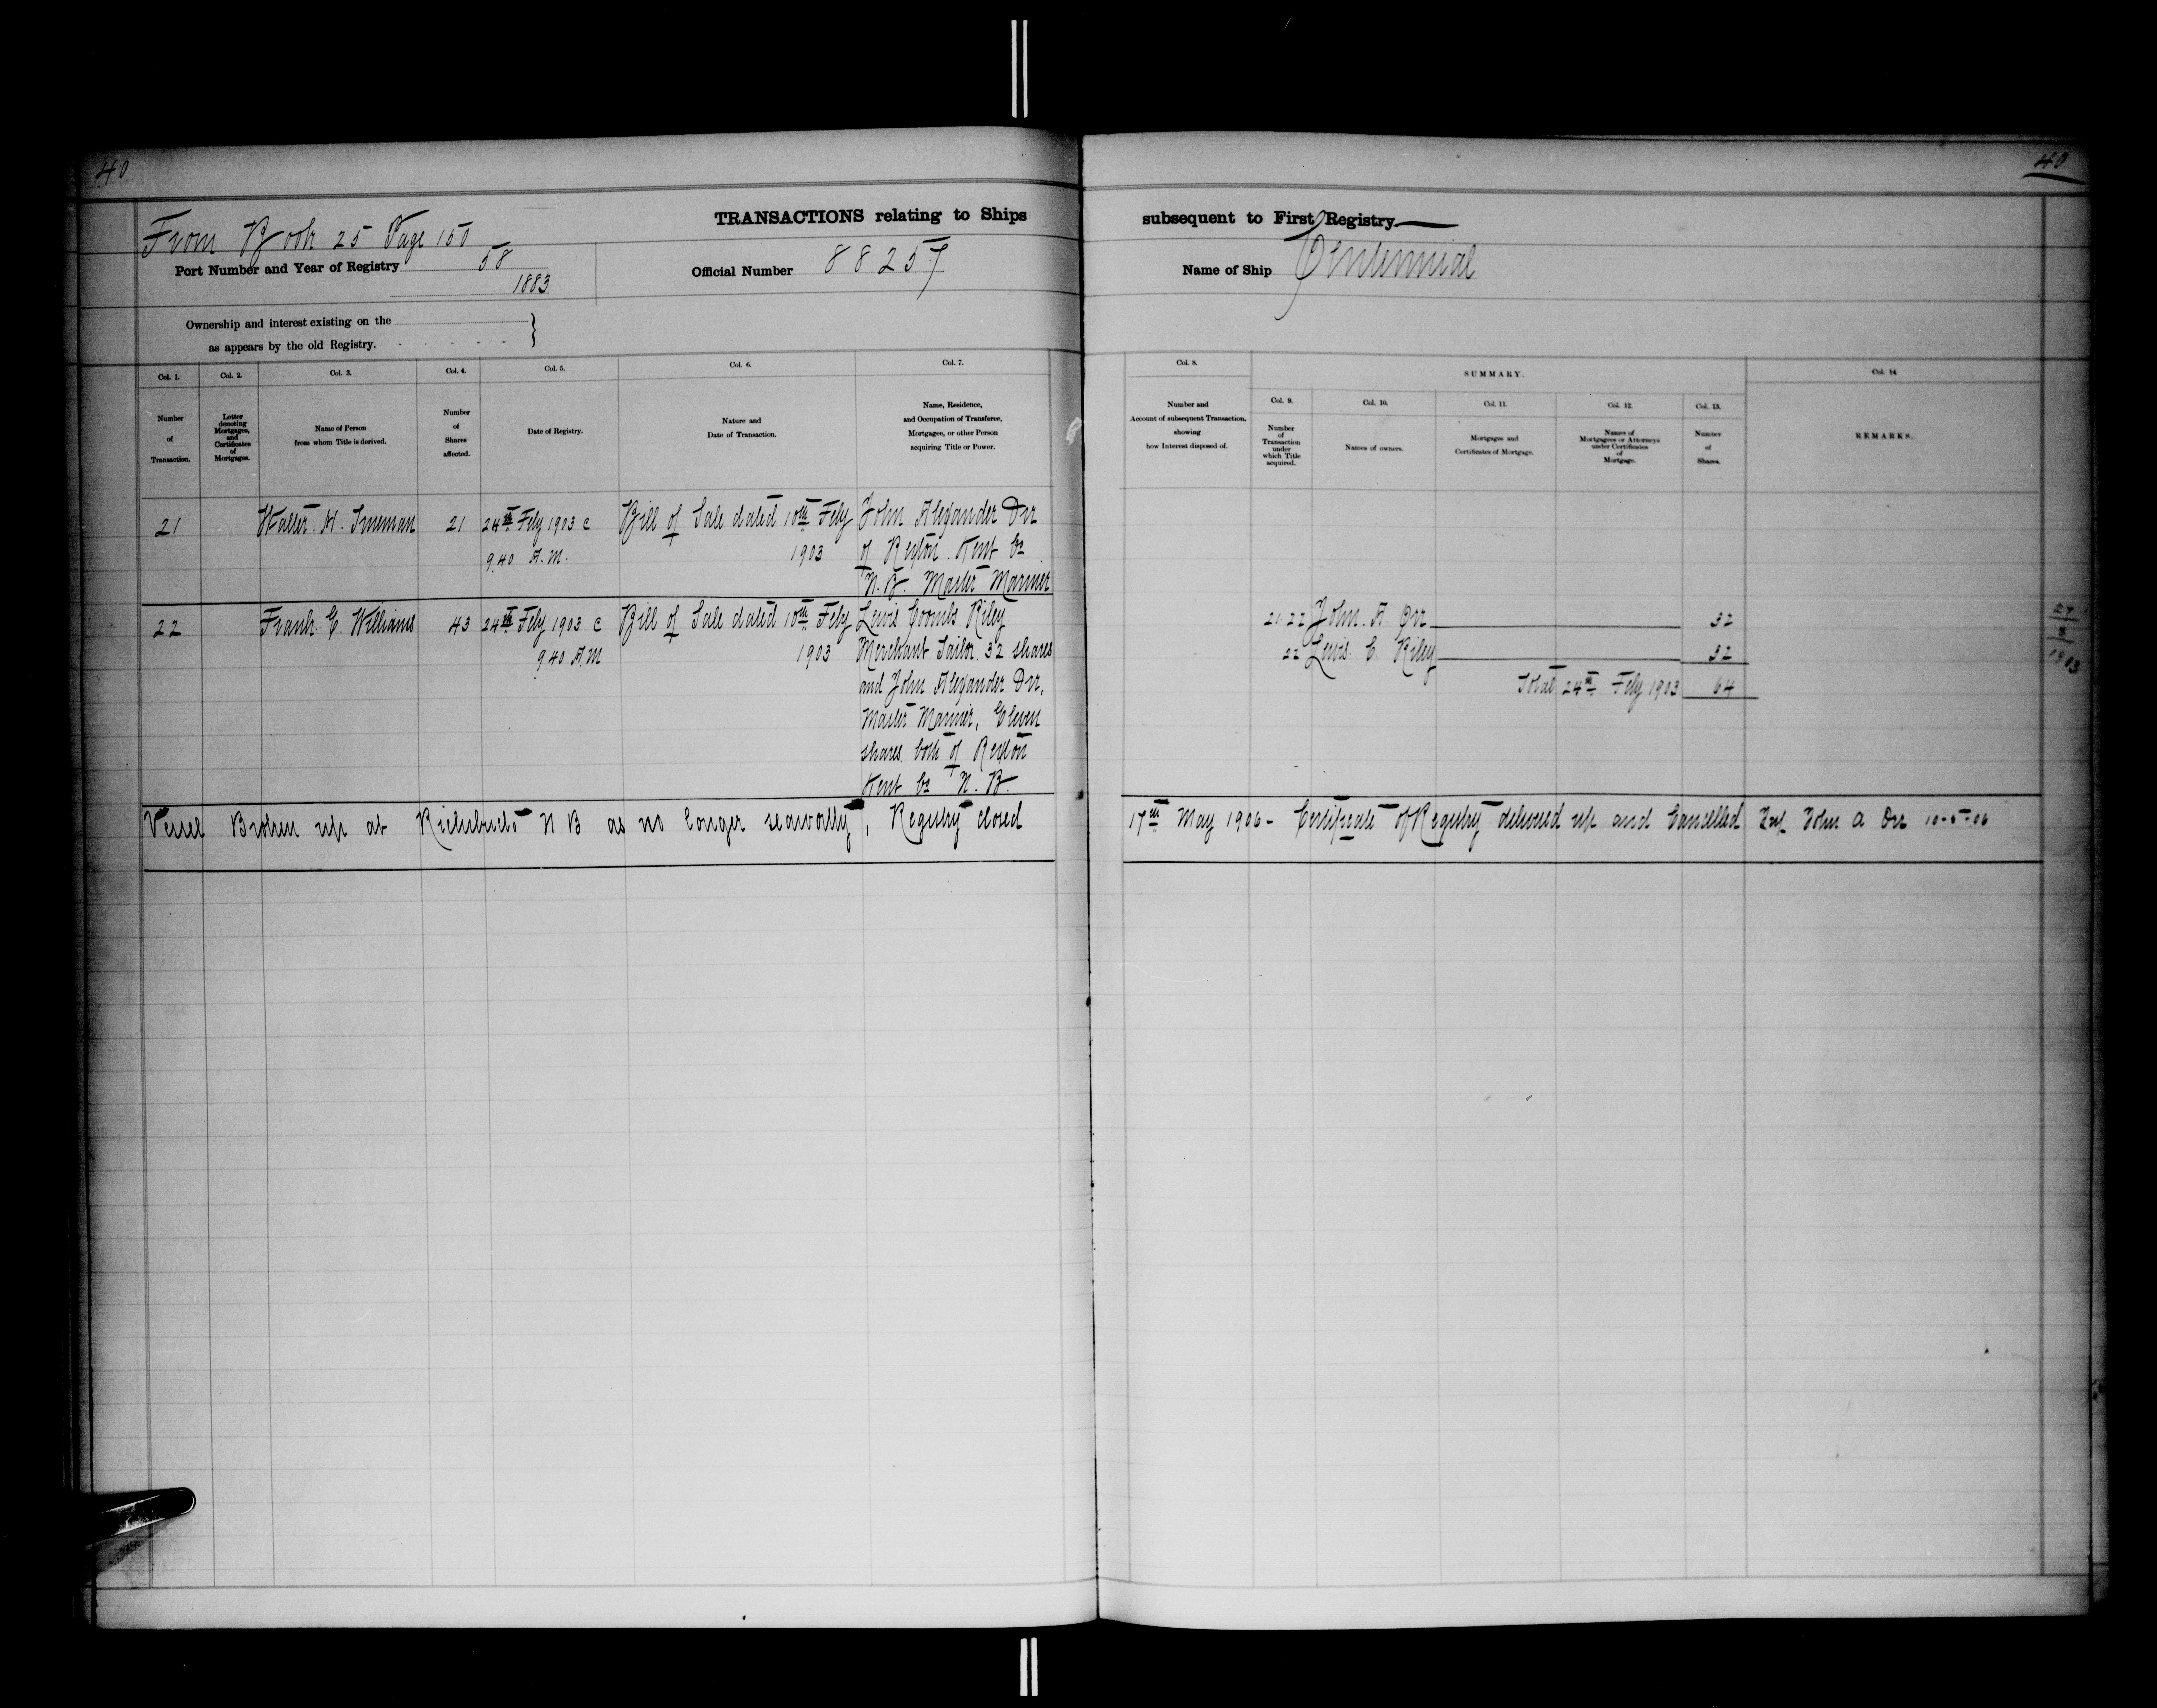 40
40
TRANSACTIONS relating to Ships subsequent to First Registry
From Book 25 Page 150
Port Number and Year of Registry 58
1883
Official Number 88257
Name of Ship Centennial
Ownership and interest existing on the
as appears by the old Registry.
Col. 1.
Number
of
Transaction.
Col. 2.
Letter
denoting
Mortgages,
and
Certificates
of
Mortgages.
Col. 3.
Name of Person
from whom Title is derived.
Col. 4.
Number
of
Shares
affected.
Col. 5.
Date of Registry.
Col. 6.
Nature and
Date of Transaction.
Col. 7.
Name, Residence,
and Occupation of Transferee,
Mortgagee, or other Person
acquiring Title or Power.
Col. 8.
Number and
Account of subsequent Transaction,
showing
how Interest disposed of.
SUMMARY.
Col. 9.
Number
of
Transaction
under
which Title
acquired.
Col. 10.
Names of owners.
Col. 11.
Mortgages and
Certificates of Mortgage.
Col. 12.
Names of
Mortgagees or Attorneys
under Certificates
of
Mortgage.
Col. 13.
Number
of
Shares.
Col. 14.
REMARKS.
21 Walter. H. 21 24th Feby 1903 @ Bill of Sale dated 10th Feby John Alexander Orr
9.40 A.M. 1903 of Rexton Kent Co
N.B. Master Mariner
22 Frank. C. Williams 43 24th Feby 1903 @ Bill of Sale dated 10th Feby Lewis Coombs Riley
9.40 A.M 1903 Merchant Tailor. 32 shares
and John Alexander Orr,
Master Mariner, Eleven
shares both of Rexton
Kent Co N. B.
21.22 John. A. Orr 32
22 Lewis. C. Riley 32
Total 24th Feby 1903 64
24
2
1903
Vessel Broken up at Richibucto N B as no longer seaworthy, Registry closed 17th May 1906 - Certificate of Registry delivered up and Cancelled John A Orr 10-5-06